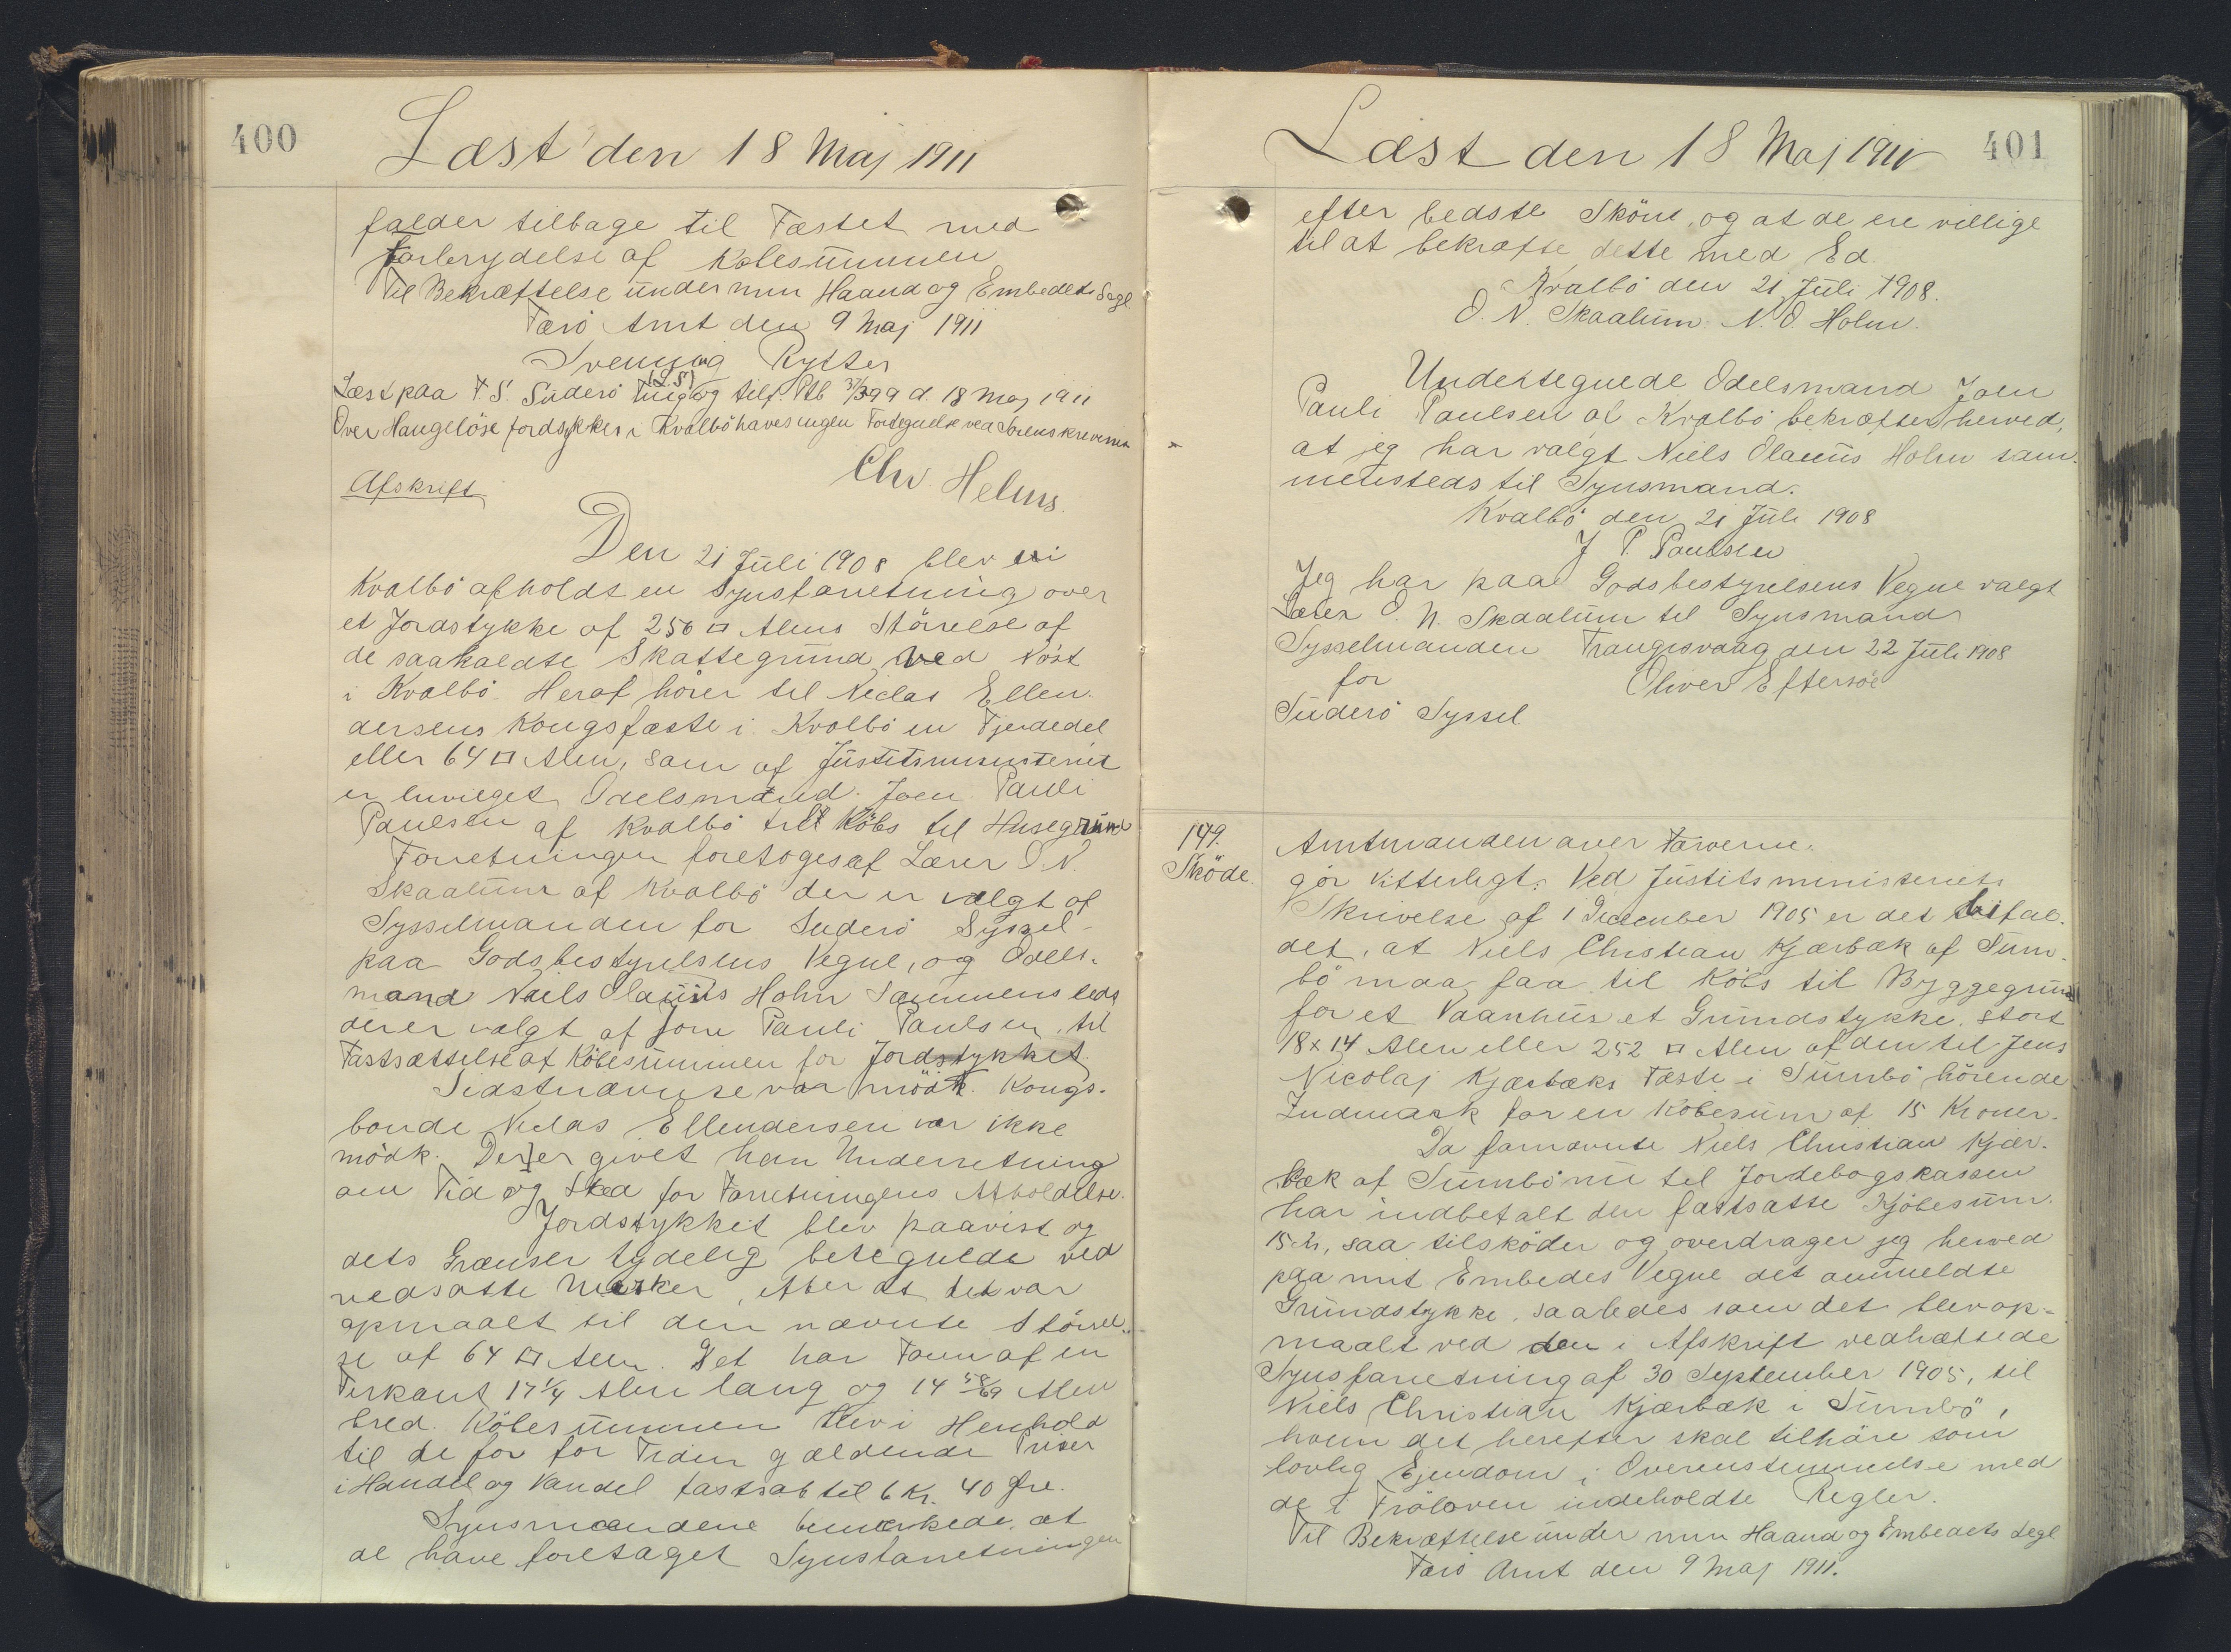 400
Læst den 18 Maj 1911
falder tilbage til Fæstet med
Forbrydelse af Købesummen
Til Bekræftelse under min Haand og Embedets Segl
Færö Amt den 9 Maj 1911
Svenning Rytter
(L.S)
Læst paa F.S. Süderö Ting og tilf. Ptb 399 d. 18 Maj 1911
Over Haugelöse Jordstykker i Kvalbö haves ingen Fortegnelse ved Sorenskriveriet
Chr Helms.
Afskrift
Den 21 Juli 1908 blev i
Kvalbö afholdt en Synsforretning over
et Jordstykke af 256 □ Alens Störrelse af
de saakaldte Skattegrund ved Nöst
i Kvalbö. Heraf hörer til Niclas Ellen-
dersens Kongsfæste i Kvalbö en Fjerdedel
eller 64 □ Alen, som af Justitsministeriet
er bevilget Odelsmand Joen Pauli
Paulsen af Kvalbö till Köbs til Husegrund
Forretningen foretoges af Lærer O. N.
Skaalum af Kvalbö der er valgt af
Sysselmanden for Suderö Syssel
paa Godsbestyrelsens Vegne, og Odels-
mand Niels Olauus Holm sammensteds
der er valgt af Jone Pauli Paulsen, til
Fastsættelse af Köbesummen for Jordstykket.
Sidstnævnte var mödt. Kongs-
bonde Niclas Ellendersen var ikke
mödt. Der er givet ham Underretning
om Tid og Sted for Forretningens Afholdelse.
Jordstykket blev paavist og
dets Grænser tydelig betegnede ved
nedsatte Mærker, efter at det var
opmaalt til den nævnte Störrel-
se af 64 □ Alen. Det har Form af en
Firkant 17 1/4 Alen lang og 14 58/69 Alen
bred. Köbesummen blev i Henhold
til de for for Tiden gældende Priser
i Handel og Vandel fastsat til 6 Kr. 40 Øre.
Synsmændene bemærkede, at
de have foretaget Synsforretningen
Læst den 18 Maj 1911
401
efter bedste Skönt, og at de ere villige
til at bekræfte dette med Ed.
Kvalbö den 21 Juli 1908.
O. N. Skaalum. N. O. Holm.
Undertegnede Odelsmand Joen
Pauli Paulsen af Kvalbö bekræfter herved,
at jeg har valgt Niels Olauus Holm sam-
mensteds til Synsmand.
Kvalbö den 21 Juli 1908
J P. Paulsen
Jeg har paa Godsbestyrelsens Vegne valgt
Lærer O. N. Skaalum til Synsmand
Sysselmanden Trangisvaag den 22 Juli 1908
for Oliver Effersöe
Süderö Syssel
149.
Sköde.
Amtmanden over Færöerne.
gör vitterligt: Ved Justitsministeriets
Skrivelse af 1 December 1905 er det bifal-
det, at Niels Christian Kjærbæk af Sum-
bö maa faa til Köbs til Byggegrund
for et Vaanhus et Grundstykke, stort
18 x 14 Alen eller 252 □ Alen af den til Jens
Nicolaj Kjærbæks Fæste i Sumbö hörende
Indmark for en Köbesum af 15 Kroner.
Da fornævnte Niels Christian Kjær-
bæk af Sumbö nu til Jordebogskassen
har indbetalt den fastsatte Kjöbesum
15 Kr, saa tilsköder og overdrager jeg herved
paa mit Embedes Vegne det ommeldte
Grundstykke, saaledes som det blev op-
maalt ved den i Afskrift vedhæftede
Synsforretning af 30 September 1905, til
Niels Christian Kjærbæk i Sumbö,
hvem det herefter skal tilhöre som
lovlig Ejendom i Overensstemmelse med
de i Fröloven indeholdte Regler.
Til Bekræftelse under min Haand og Embedets Segl
Færö Amt den 9 Maj 1911.